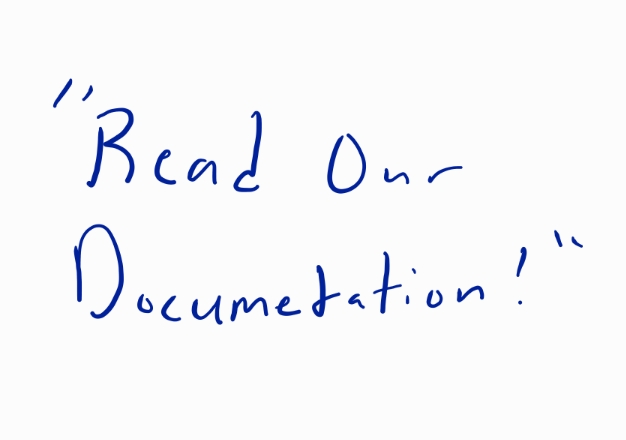 "Read Our
Documetation!"